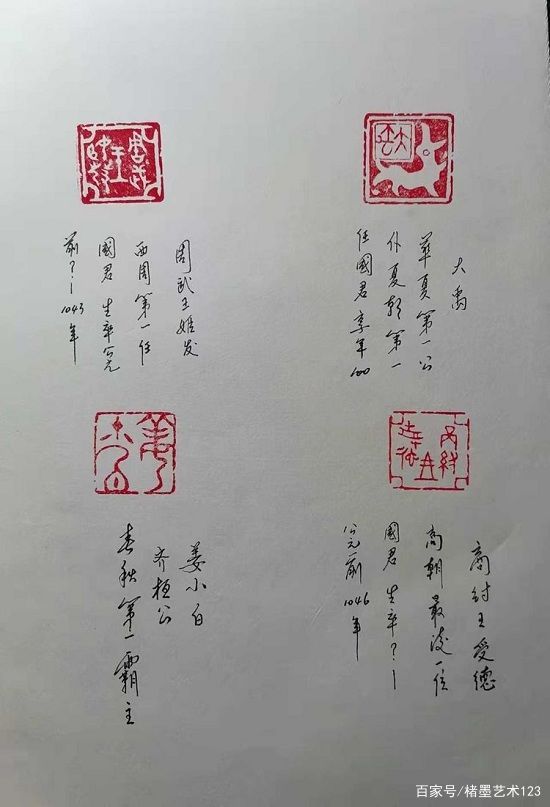 大禹
華夏第一公
仆夏朝第一
任國君 享年100
周武王姬发
西周第一任
國君 生卒公元
前?—1043年
商紂王受德
商朝最後一位
國君 生卒?—
公元前1046年
姜小白
齐桓公
春秋第一霸主
百家号/楮墨艺术123